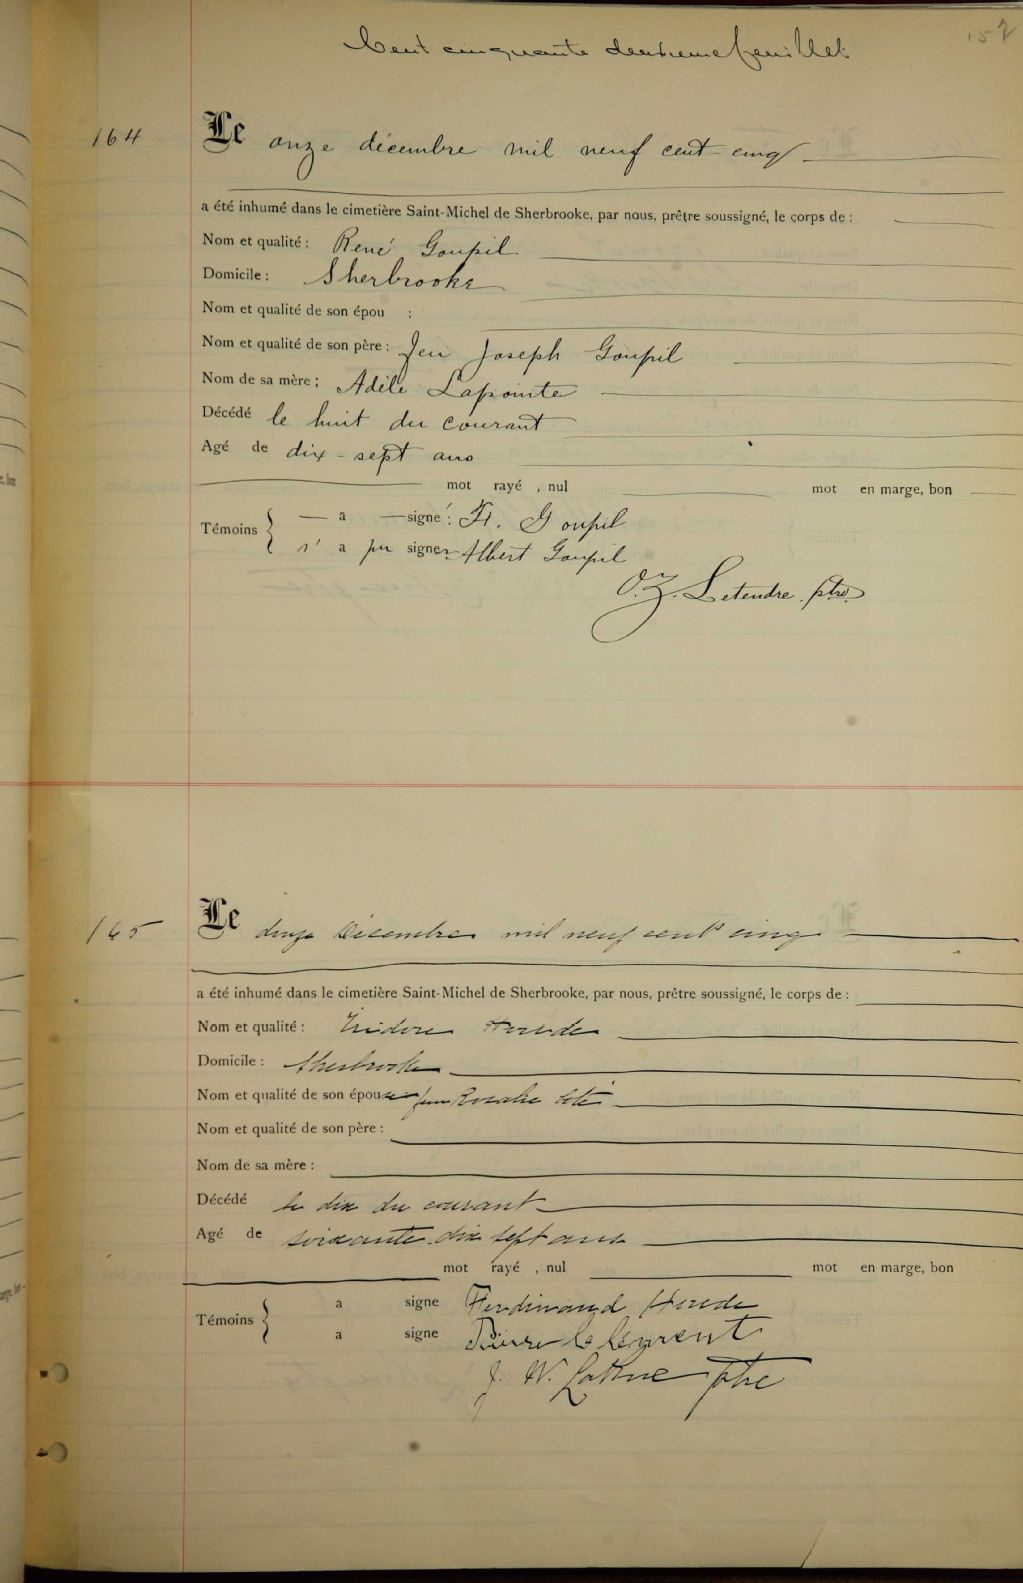 Cent cinquante deuxieme feuillet
152
164
Le onze décembre mil neuf cent cinq
a été inhumé dans le cimetière Saint-Michel de Sherbrooke, par nous, prêtre soussigné, le corps de :
Nom et qualité : René Goupil
Domicile : Sherbrooke
Nom et qualité de son épou :
Nom et qualité de son père : feu Joseph Goupil
Nom de sa mère : Adèle Lapointe
Décédé le huit du courant
Agé de dix-sept ans
mot rayé , nul mot en marge, bon
Témoins { a signé : Goupil
n' a pu signer Albert Goupil
O. Z. Letendre ptre.
165
Le douze Décembre mil neuf cent cinq
a été inhumé dans le cimetière Saint-Michel de Sherbrooke, par nous, prêtre soussigné, le corps de :
Nom et qualité : Isidore
Domicile : Sherbrooke
Nom et qualité de son épouse feue Rosalie
Nom et qualité de son père :
Nom de sa mère :
Décédé le dix du courant
Agé de soixante dix sept ans
mot rayé , nul mot en marge, bon
Témoins { a signe Ferdinand
a signe Pierre
J. W. ptre